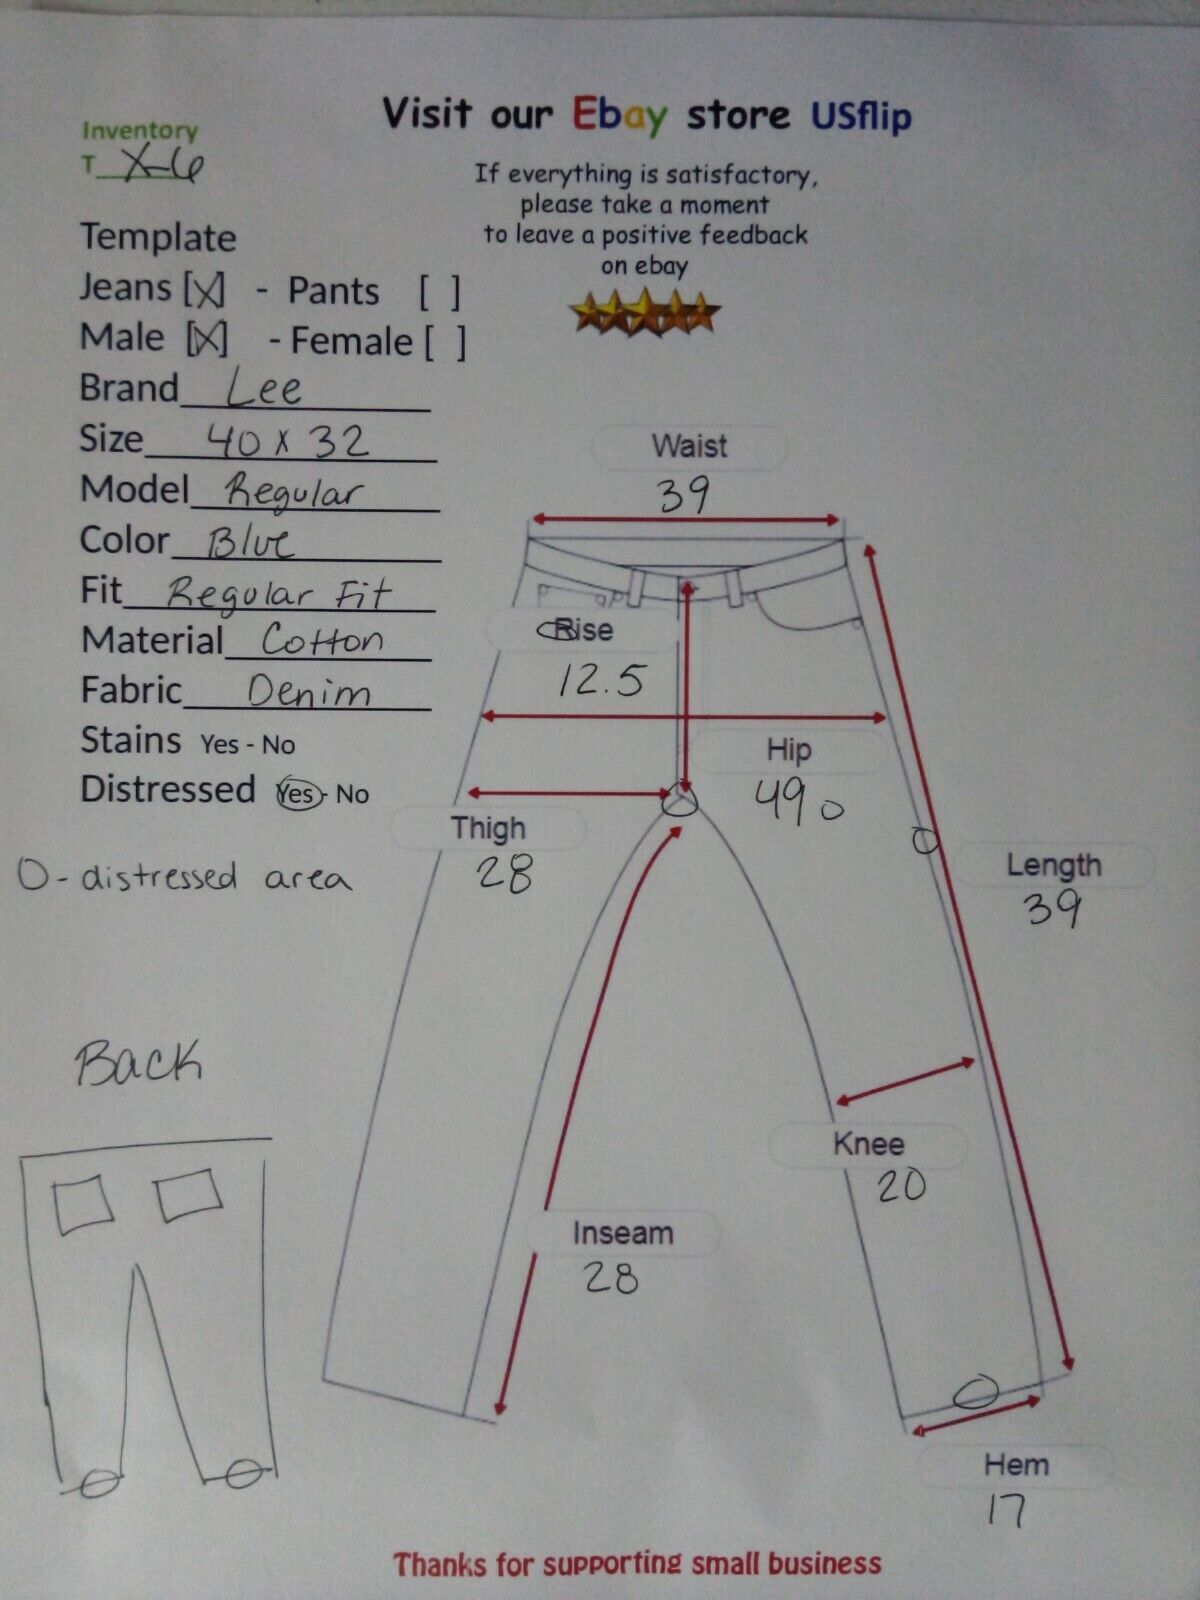 Visit our Ebay store USflip
Inventory
T X-6
If everything is satisfactory,
please take a moment
to leave a positive feedback
on ebay
Template
Jeans [X] - Pants [ ]
Male [X] - Female [ ]
Brand Lee
Size 40 x 32
Model Regular
Color Blue
Fit Regular Fit
Material Cotton
Fabric Denim
Stains Yes - No
Distressed Yes - No
O - distressed area
Waist
39
Rise
12.5
Hip
49
Thigh
28
Length
39
Back
Knee
20
Inseam
28
Hem
17
Thanks for supporting small business